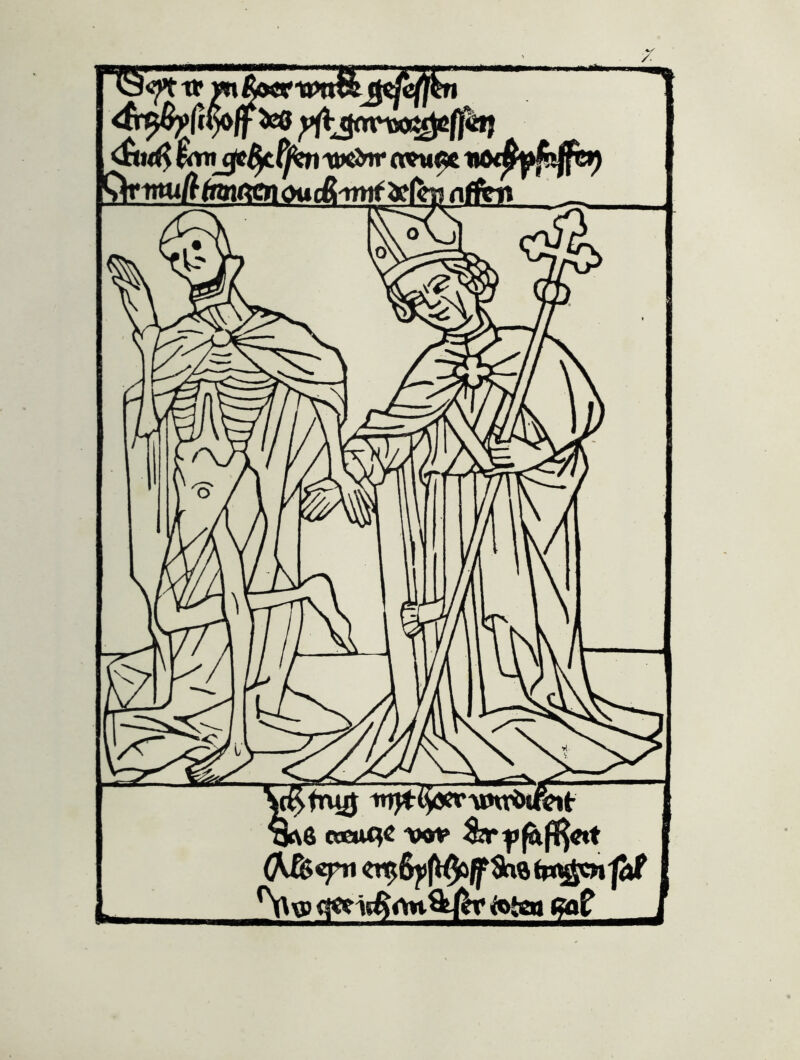 7.
Seyt ir yn hoer wirde gesessen
Ertzbyschoff des yst gar vorgessen
Euch kan gehelffen weder creucze noch pfaffen
Ir must springen ouch mit desen affen
Ich trug myt hoer wirdikeit
Das creucze vor der pfaffheit
Als eyn ertzbyschoff das tragen sal
Nw gee ich an deser toten zal